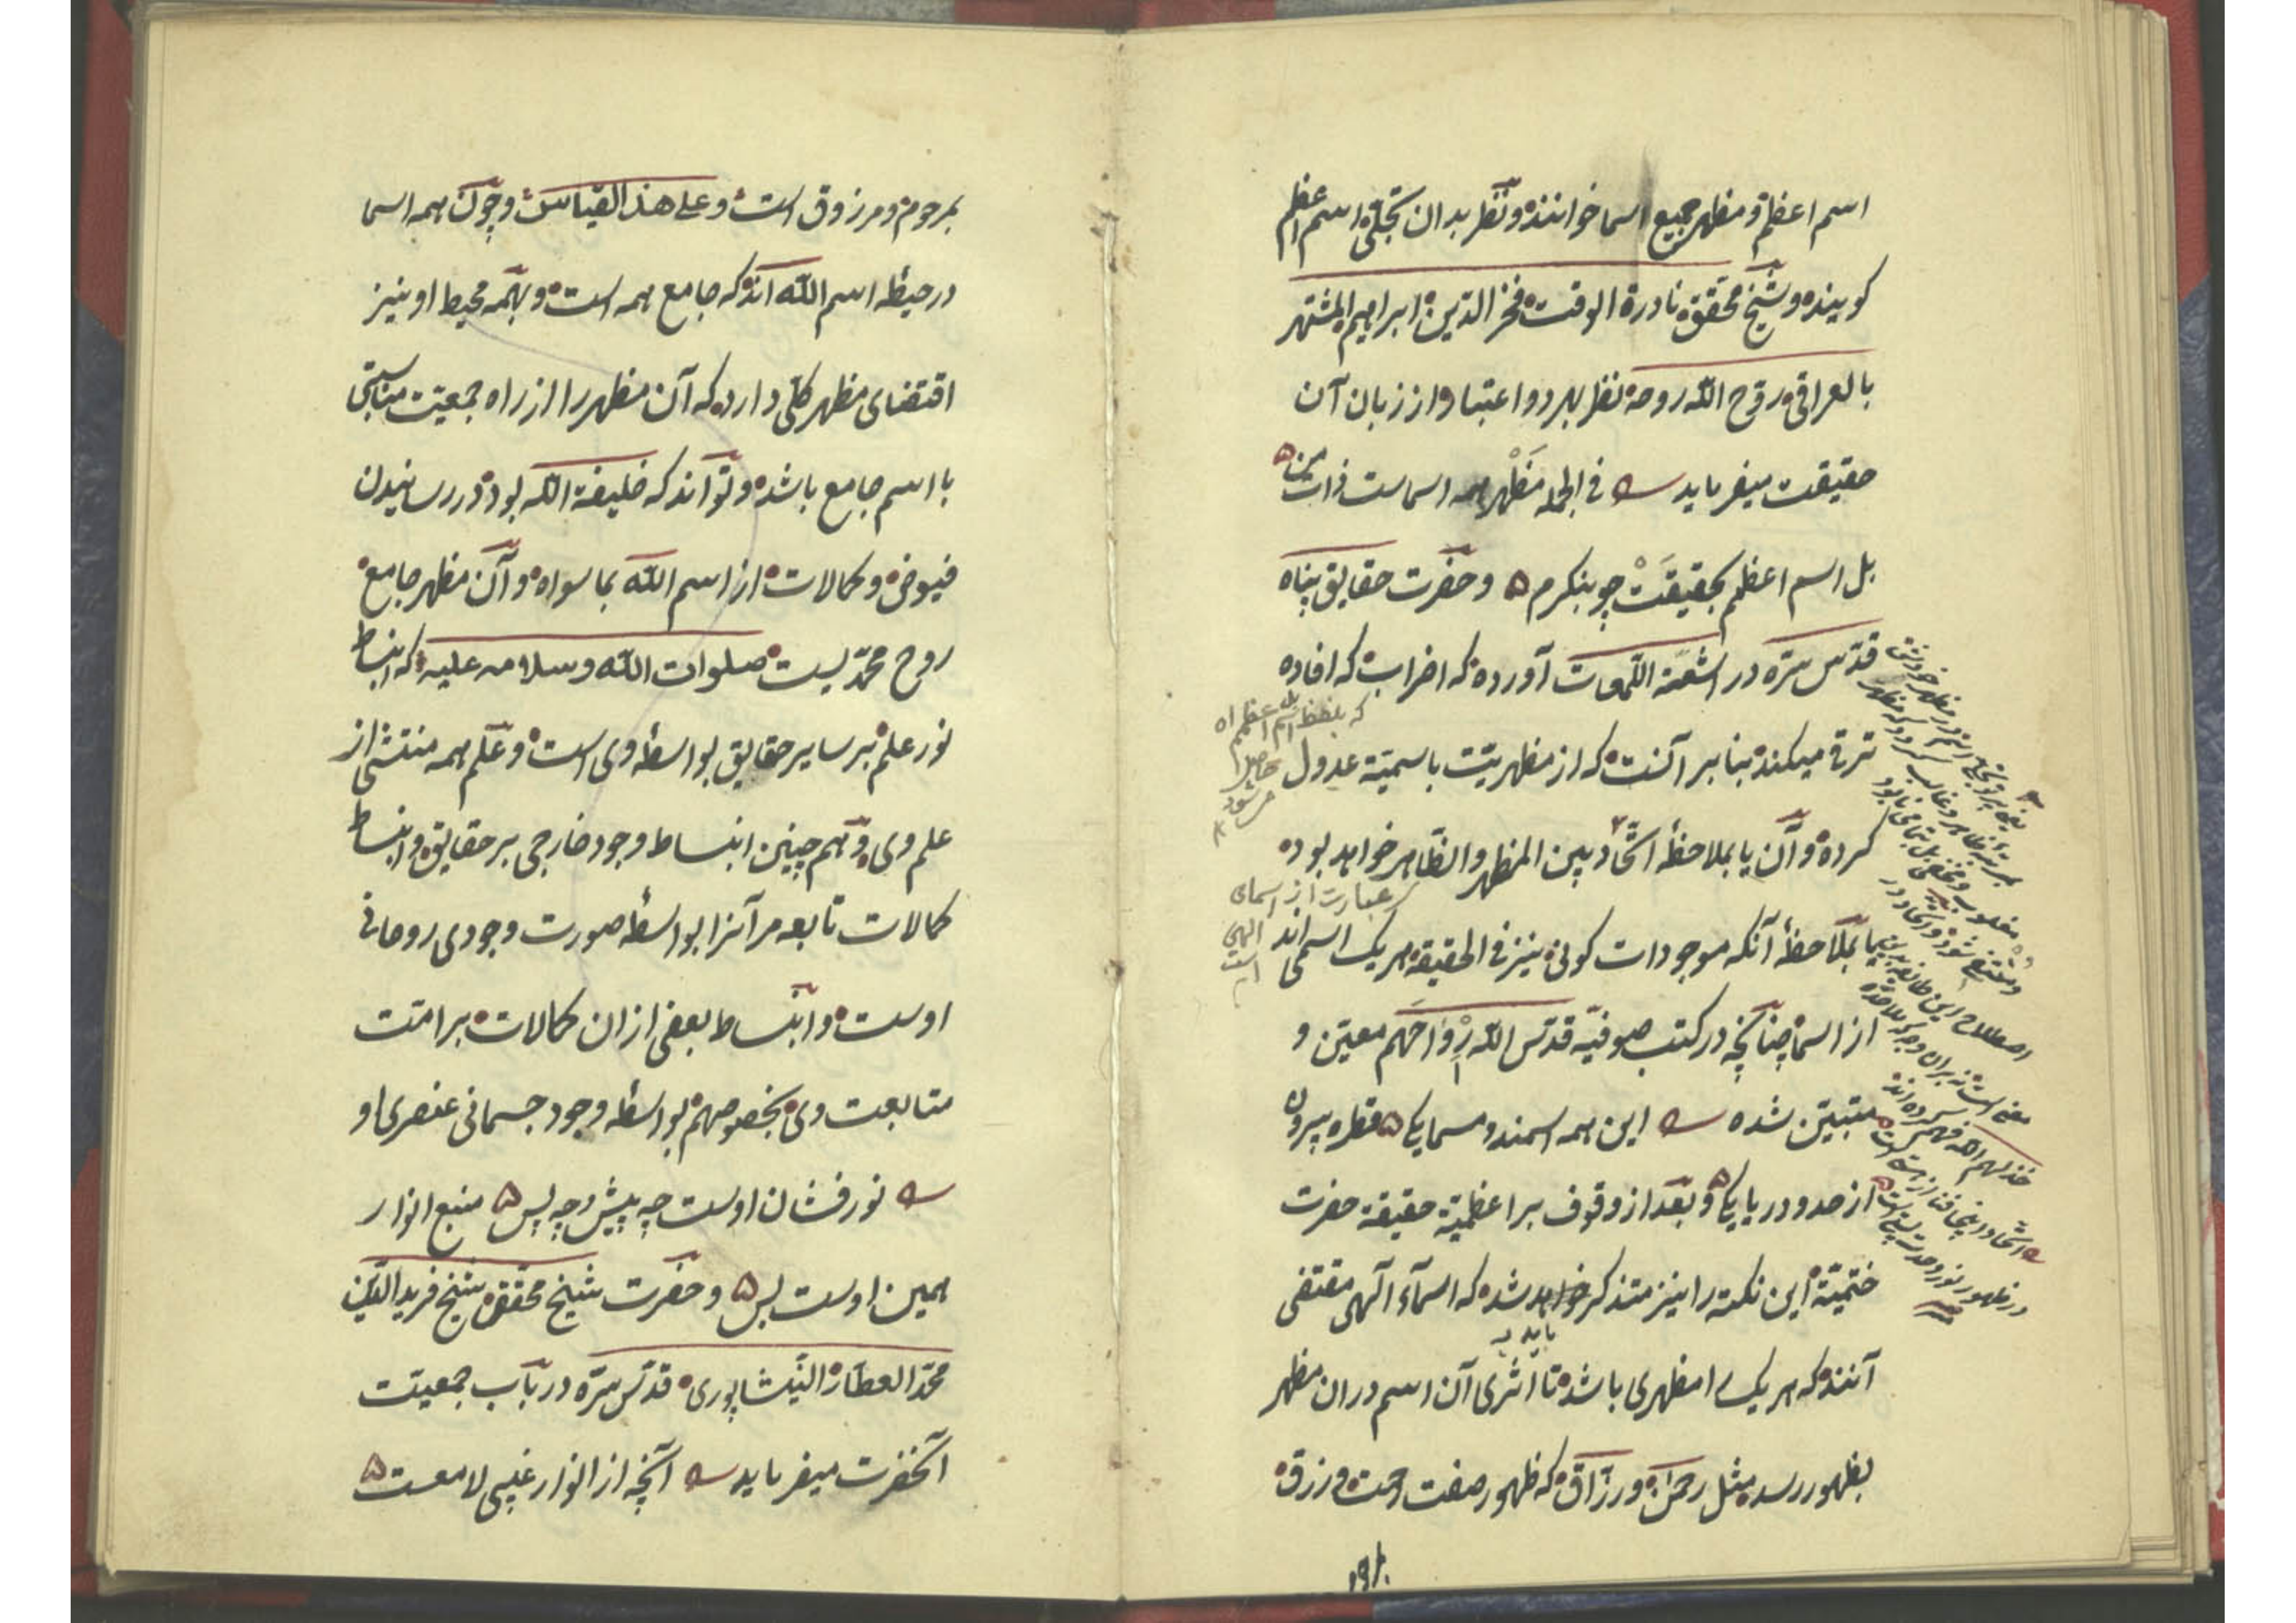 اسم اعظم و مظهر جمیع اسما خوانند و نظر بدان تجلی اسم اعظم
کویند و شیخ محقق نادرة الوقت فخر الدین ابراهیم المشتهر
بالعراقی روّح الله روحه نظر بهر دو اعتبار از زبان آن
حقیقت میفرماید فی الجمله مَظْهر همه اسماست ذات من
بل اسم اعظم بحقیقت چو بنکرم و حضرت حقایق پناه
قدّس سرّه در اشعّة اللّمعات آورده که اضراب که افاده
ترقی میکند بنا بر آنست که از مظهریّت باسمیّة عدول
کرده و آن یا بملاحظهٔ اتّحاد بین المظهر و الظّاهر خواهد بود
یا بملاحظهٔ آنکه موجودات کونی نیز فی الحقیقه هر یک اسمی اند
از اسما چنانچه در کتب صوفیّه قدّس الله ارواحهم معیّن و
متبیّن شده این همه اسمند و مسما یکی قطره بیرون
از حد و دریا یکی و بعد از وقوف بر اعظمیّة حقیقة حضرت
ختمیّة این نکته را نیز متذکر خواهد شد که اسمآء الهی مقتضی
آنند که هر یک را مظهری باشد تا اثری آن اسم دران مظهر
بظهور رسد مثل رحمن و رزّاق که ظهور صفت رحمت و رزق
که بلفظ اسم اعظم
حاصل
می شود
عبارت از اسمای
الهی
است
باید
اتّحاد
در ظهور نور وحدت
۱۹۲
بمرحوم و مرزوق است و علی هذا القیاس و چون همه اسما
در حیطهٔ اسم الله اند که جامع همه است و بهمه محیط او نیز
اقتضای مظهر کلّی دارد که آن مظهر را از راه جمعیّت مناسبتی
با اسم جامع باشد و تواند که خلیفة الله بود در رسانیدن
فیوض و کمالات از اسم الله بما سواه و آن مظهر جامع
روح محمّدیست صلوات الله و سلامه علیه که انبساط
نور علم بر سایر حقایق بواسطهٔ وی است و علم همه منتشی از
علم وی و هم چنین انبساط وجود خارجی بر حقایق و انبساط
کمالات تابعه مر آنرا بواسطهٔ صورت وجودی روحانی
اوست و انبساط بعضی ازان کمالات بر امّت
متابعت وی بخصوصهم بواسطهٔ وجود جسمانی عنصری او
نور فشان اوست چه پیش و چه پس منبع انوار
همین اوست بس و حضرت شیخ محقق شیخ فرید الدّین
محمّد العطّار النیشاپوری قدّس سرّه در باب جمعیّت
آنحضرت میفرماید آنچه از انوار غیبی لامعست